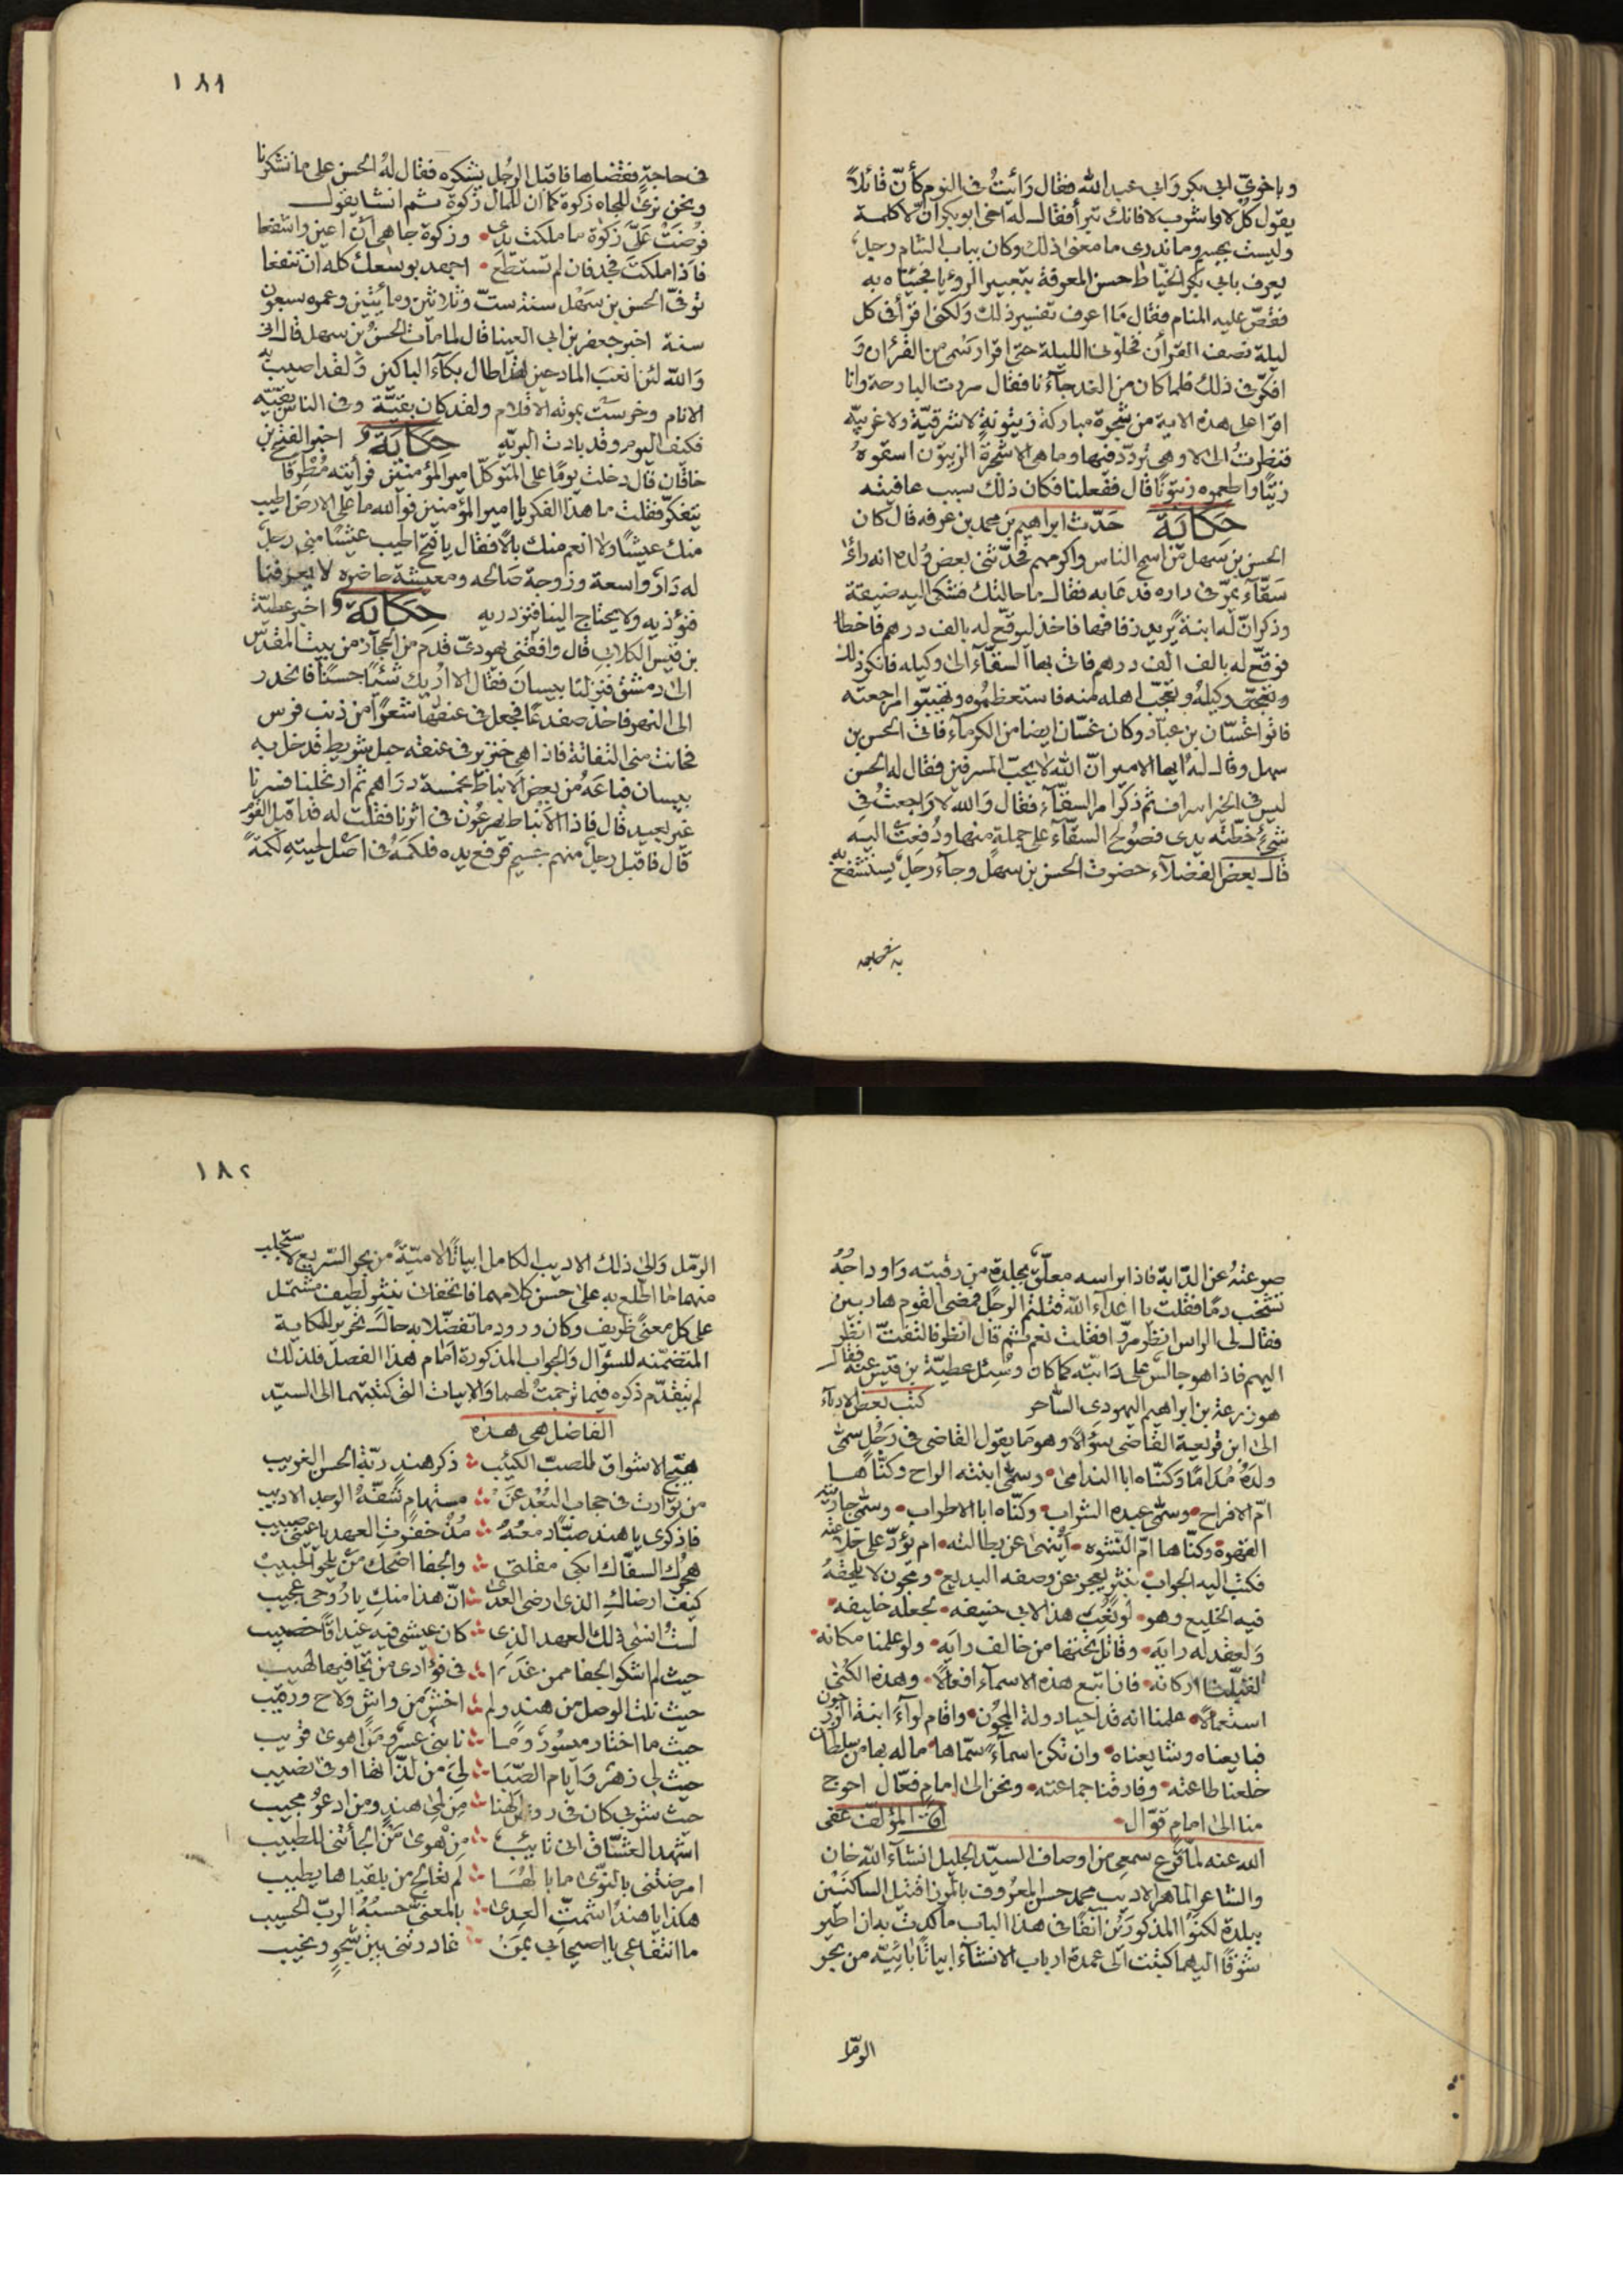 وباخوىّ ابى بكر وَابى عبد الله فقال رَائيتُ فى النوم كأنّ قائلاً
يقول كُل لا واشرب لا فانك تبرأ فقال له اخى ابو بكر انّ لا كلمة
وليست بجسم وما ندرى ما معنى ذلك وكان بباب الشام رجل
يعرف بابى بكر الخيّاط حسن المعرفة بتعبير الرويا فجئناه به
فقصّ عليه المنام فقال مَا اعرف تفسير ذلك وَلكنى اقرأ فى كل
ليلة نصف القرأن فخلونى الليلة حتى اقرا رسمى من القرأن وَ
افكّر فى ذلك فلما كان من الغد جآءنا فقال مررت البارحة وانا
اقرا على هذه الاية من شجرة مباركة زيتونةٍ لا شرقيّة ولا غربيّه
فنظرتُ الى لا وهى تُردّد فيها وما هى الا شجرة الزيتون اسقوهُ
زيتًا واطعموه زيتونًا قال ففعلنا فكان ذلك سبب عافيته
حكاية حَدّث ابراهيم بن محمد بن عرفه قال كان
الحسن بن سهل من اسمح الناس واكرمهم فحدّثنى بعض وُلده انه رائ
سَقّآء يمرّ فى داره فدعَا به فقال ما حالتك فشكى اليه ضيقة
وذكر انّ له ابنة يريد زفافها فاخذ ليوقّع له بالف درهم فاخطا
فوقّع له بالف الف درهم فاتى بها السقّآء الى وكيله فانكر ذلك
وتعجّب وكيلهُ وتعجّب اهله منه فاستعظموه وتهيّبوا مراجعته
فاتوا غسّان بن عبّاد وكان غسّان ايضا من الكرمآء فاتى الحسن بن
سهل وقال لهُ ايها الامير انّ الله لا يحبّ المسرفين فقال له الحسن
ليس فى الخير اسراف ثم ذكر امر السقّآء فقال وَالله لا رَاجعتُ فى
شئٍ خطّته يدى فصُولح السقّآء على جملةٍ منها ودُفعت اليه
قال بعض الفضلآء حضرت الحسن بن سهل وجآء رجل يستشفع به
فى حاجةٍ فقضاها فاقبل الرجل يشكره فقال لهُ الحسن على ما تشكرنا
ونحن نرى للجاه زكوة كما ان للمال زكوة ثم انشا يقول
فُرِضَتْ عَلَىَّ زكَوٰة ما ملكت يدى • وزكوة جاهى أنّ اعين واشفعا
فاذا ملكتَ فجد فان لم تستطع • اجهد بوسعك كله ان تنفعا
توفّى الحسن بن سَهْل سنة ستّ وثلاثين ومائيتين وعمره سبعون
سنة اخبر جعفر بن ابى العينا قال لما مات الحسن بن سهل قال ابى
وَالله لئن اتعبَ المادحين لقد اطال بكآء الباكين وَلقد اصيبت به
الانام وخرسَت بموته الاقلام ولقد كان بقيّة وفى الناس بقيّه
فكيف اليوم وقد بادت البريّه حكاية و اخبر الفتح بن
خاقان قال دخلت يومًا على المتوكّل امير المؤمنين فرأيته مُطرقا
يتفكّر فقلت ما هذا الفكر يا امير المؤمنين فوالله ما على الارض اطيب
منك عيشًا ولا انعم منك بالاً فقال يا فتح اطيب عيشًا منى رجل
له دَار واسعة وزوجة صَالحه ومعيشة حاضره لا يعرفنا
فنؤذيه ولا يحتاج الينا فنزدريه حكاية و اخبر عطيّة
بن قيس الكلابى قال وافقنى يهودىّ قدم من الحجاز من بيت المقدّس
الى دمشق فنزلنا بيسان فقال الا اُريك شئًا حسنًا فانحدر
الى النهر فاخذ ضفدعًا فجعل فى عنقها شعرًا من ذنب فرس
فحانت منى التفاتة فاذا هى خنزير فى عنقه حبل شريط فدخل به
بيسان فباعَهُ من بعض الانباط بخمسة دراهم ثم ارتحلنا فسرنا
غير بعيد قال فاذا الأنباط يهرعُون فى اثرنا فقلت له قد اقبل القوم
قال فاقبل رجل منهم جسيم فرفع يده فلكمهُ فى اصل لحيته لكمةً
صرعتهُ عن الدّابة فاذا براسه معلّق بجلدةٍ من رقبته وَاوداجهُ
تشخب دمًا فقلت يا اعدآء الله قتلتم الرجل فمضى القوم هاربين
فقال لى الراس انظر مرّوا فقلت نعم ثم قال انظر فالتفتّ انظر
اليهم فاذا هو جالس على دَابّته كما كان وسُئِل عطيّة بن قيس عنه فقال
هو زرعة بن ابراهيم اليهودى الساحر كتب بعض الادبآء
الى ابن قريعة القاضى سؤالاً وهو مَا يقول القاضى فى رَجُل سمّى
ولدَهُ مُدَامًا وَكنّاه ابا الندامى • وسمّى ابنته الراح وكنّاها
امّ الافراح • وسمّى عبده الشراب • وكنّاه ابا الاطراب • وسمّى جاريته
القهوة وكنّاها امّ النّشوه • أيُنهى عن بطالته • ام يُؤدّب على خلاعته
فكتب اليه الجواب بنثر يعجز عن وصفه البديع • ومجون لا يلحقهُ
فيه الخليع وهو • لو نُعِتَ هذا لابى حنيفه • لجعله خليفه •
وَلعقد له رايه • وقاتل تحتها من خالف رايه • ولو علمنا مكانه •
لقبّلنا اركانه • فان اتبع هذه الاسمآء افعالاً • وهذه الكُنى
استعمالاً • علمنا انه قد احيا دولة المجُون • واقام لوآءَ ابنة الزّرجون
فبايعناه وشايعناه • وان تكن اسمآءً سمّاها • ما له بها من سلطان
خلعنا طاعته • وفارقنا جماعته • ونحن الى امامٍ فعّال احوج
منا الى امامٍ قوّال • المؤلف عفى
الله عنه لمّا قرع سمعى من اوصاف السيّد الجليل انشآء الله خان
والشاعر الماهر الاديب محمد حسن المعرُوف بالمرزا قتيل الساكنَيْن
ببلدة لكنو المذكورَيْن آنفًا فى هذا الباب ما كدت بدان اطير
شوقًا اليهما كتبت الى عمدة ارباب الانشآء ابياتًا بائيّه من بحر
الرمل
١٨٢
الرّمل وَالى ذلك الاديب الكامل ابياتًا لاميّة من بحر السّريع لاستجلب
منهما ما اطّلع به على حسن كلامهما فاتحفانى بنثر لطيف مشتمل
على كل معنىً ظريف وكان ورود ما تفضّلا به حالَ تحرير الحكاية
المتضمّنه للسؤال وَالجواب المذكورة امام هذا الفصل فلذلك
لم يتقدّم ذكره فيما ترجمتُ لهما وَالابيات التى كتبتهما الى السيّد
الفاضل هى هذه
هيّج الاشواق للصبّ الكئيب ∴ ذكر هندٍ ربّة الحسن الغريب
من توارت فى حجاب البُعْد عَنْ ∴ مستهام شَفّهُ الوجد الاديب
فاذكرى يا هند صبّاً دمعُهُ ∴ مُذْ خفرتِ العهد يا عينى صبيب
هجرُك السفّاك ابكى مقلتى ∴ والجفا اضحك مَنْ يلحو الحبيب
كيف ارضاكِ الذى ارضى العدى ∴ انّ هذا منكِ يا رُوحى عجيب
لستُ انسى ذلك العهد الذى ∴ كان عيشى فيهِ غيداقًا خصيب
حيث لم اشكو الجفا ممن غَدَا ∴ فى فؤادى من تجافيها لهيب
حيث نلت الوصل من هندٍ ولم ∴ اخشَ من واشٍ ولاحٍ ورقيب
حيث ما اختار ميسُورٌ وما ∴ نابنى عسرٌ ومَن اهوى قريب
حيث لى زهر وَايام الصّبَا ∴ لىَ من لذّاتها اوفى نصيب
حيث شربى كان فى روض الهنا ∴ مِن لمى هندٍ ومن ادعُو مجيب
اشهد العشّاق انى تائبٌ ∴ مِن هوىٰ مَن الجأتنى للطبيب
امرضتنى بالنّوى ما بالها ∴ لم تعالج من بلقياها يطيب
هكذا يا هند اشمتّ العِدىٰ ∴ بالمعنىّ حسبُهُ الربّ الحسيب
ما انتفاعى يا اصيحابى بمَنْ ∴ غادرتنى بين شجوٍ ونحيب